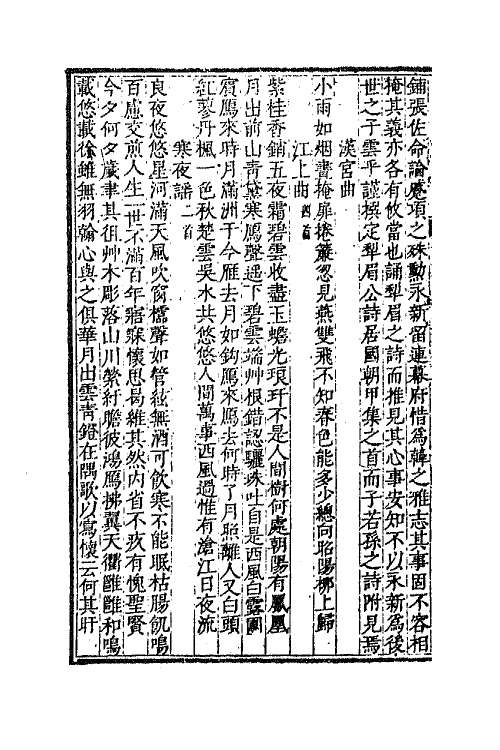 鋪張佐命論鷹項之殊勳永新留連幕府惜爲韓之雅志其事固不容相
掩其義亦各有攸當也誦犁眉之詩而推見其心事安知不以永新爲後
世之子雲乎謹撰定犁眉公詩居國朝甲集之首而子若孫之詩附見焉
漢宮曲
小雨如烟晝掩扉捲簾忽見燕雙飛不知春色能多少總向昭陽柳上歸
江上曲四首
紫桂香銷五夜霜碧雲收盡玉蟾光琅玕不是人間樹何處朝陽有鳳凰
月出前山靑黛寒鴈聲遙下碧雲端艸根錯認驪珠吐自是西風白露團
賓鴈來時月滿洲于今雁去月如鉤鴈來鴈去何時了月照離人又白頭
紅蓼丹楓一色秋楚雲吳水共悠悠人間萬事西風過惟有滄江日夜流
寒夜謠二首
良夜悠悠星河滿天風吹窗櫺聲如管絃無酒可飲寒不能眠枯腸飢鳴
百慮交煎人生一世不滿百年寤寐懷思曷維其然内省不疚有愧聖賢
今夕何夕歲聿其徂艸木彫落山川縈紆瞻彼鴻鴈拂翼天衢雝雝和鳴
載悠載徐雖無羽翰心與之俱華月出雲靑鐙在隅歌以寫懷云何其盱